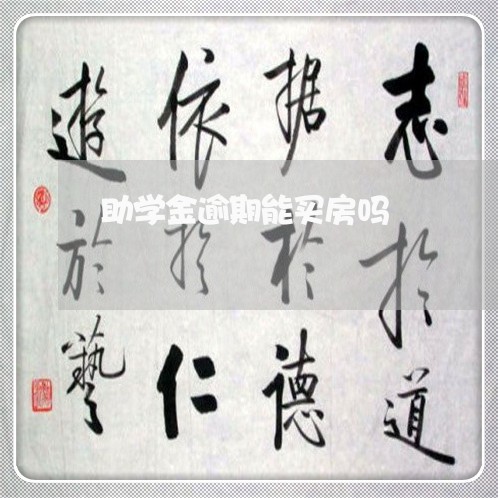 志於道
据於德
依於仁
遊於藝
助学金逾期能买房吗